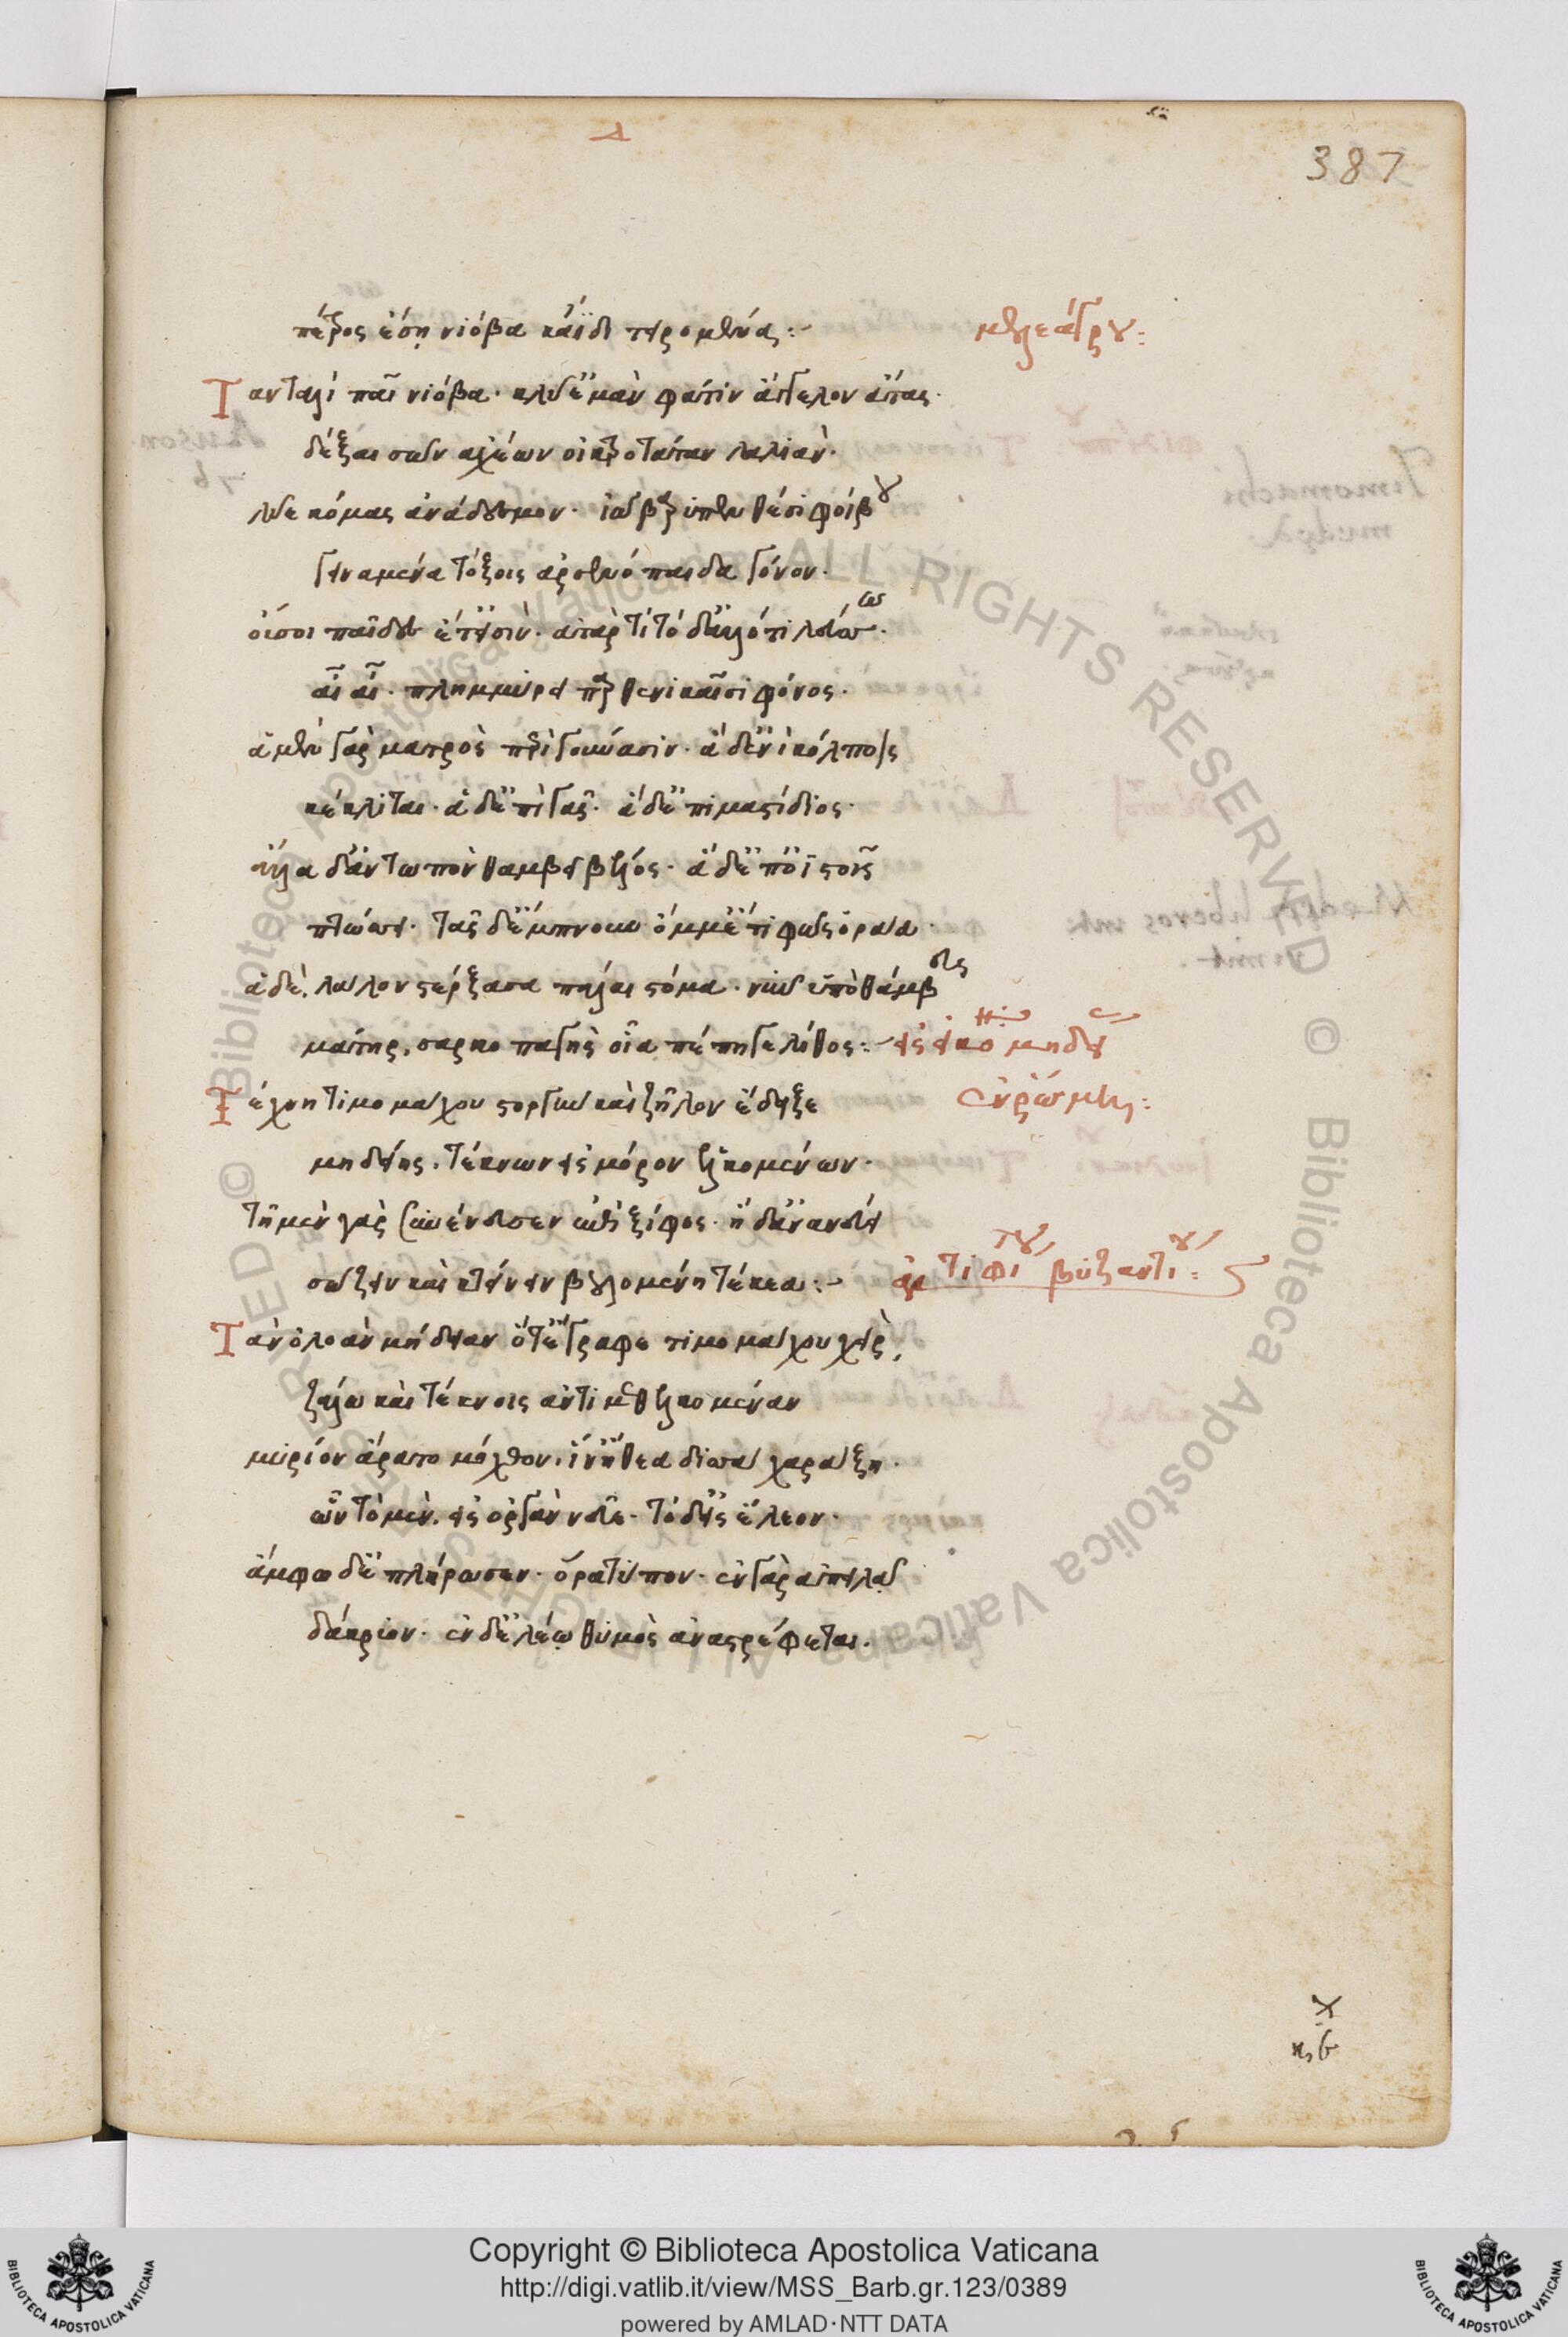 387
πέτρος ἔσῃ νιόβα κἄϊδι τειρομένας:~ μελεάγρου:
Τανταλὶ παῖ νιόβα· κλύ' ἐμὰν φάτιν ἄγγελον ἄτας·
δέξαι σῶν ἀχέων οἰκτροτάταν λαλιάν·
λῦε κόμας ἀνάδεσμον· ἰὼ βαρυπενθέσι φοίβου
γειναμένα τόξοις ἀρσενόπαιδα γόνον·
οὔ σοι παῖδες ἔτ' εἰσίν· ἀτὰρ τί τόδ' ἄλλό τι λεύσσω·
αἶ αἶ· πλημμύρει παρθενικαῖσι φόνος·
ἁ μὲν γὰρ ματρὸς περὶ γούνασιν· ἁ δ' ἐνὶ κόλποις
κέκλιται· ἁ δ' ἐπὶ γᾶς· ἁ δ' ἐπιμαστίδιος·
ἄλλα δ' ἀντωπὸν θαμβεῖ βέλος· ἁ δ' ἐπ' ὀϊστοῖς
πτώσσει· τᾶς δ' ἔμπνουν ὄμμ' ἔτι φῶς ὁράᾳ·
ἁ δὲ, λάλον στέρξασα πάλαι στόμα· νῦν ὑπὸ θάμβευς
μάτηρ, σαρκοπαγὴς οἷα πέπηγε λίθος:~ εἰς εἰκό μηδεί
Τέχνη τιμομάχου στοργὴν καὶ ζῆλον ἔδειξε ἐν ῥώμῃ:
μηδείης, τέκνων εἰς μόρον ἑλκομένων·
τῇ μὲν γὰρ συνένευσεν ἐπὶ ξίφος· ᾗ δ' ἀνανεύει
σώζειν καὶ κτείνειν βουλομένη τέκεα:~ ἀντιφί του βυζαντίου:
Τὰν ὀλοὰν μήδειαν ὅτ' ἔγραφε τιμομάχου χεὶρ,
ζάλῳ καὶ τέκνοις ἀντιμεθελκομέναν
μυρίον ἄρατο μόχθον, ἵν' ἤθεα δισσὰ χαράξῃ·
ὧν τὸ μὲν, εἰς ὀργὰν νεῦε· τὸ δ' εἰς ἔλεον·
ἄμφω δ' ἐπλήρωσεν· ὅρα τύπον· ἐν γὰρ ἀπειλᾷ
δάκρυον· ἐν δ' ἐλέῳ θυμὸς ἀναστρέφεται·
Copyright © Biblioteca Apostolica Vaticana
http://digi.vatlib.it/view/MSS_Barb.gr.123/0389
powered by AMLAD·NTT DATA